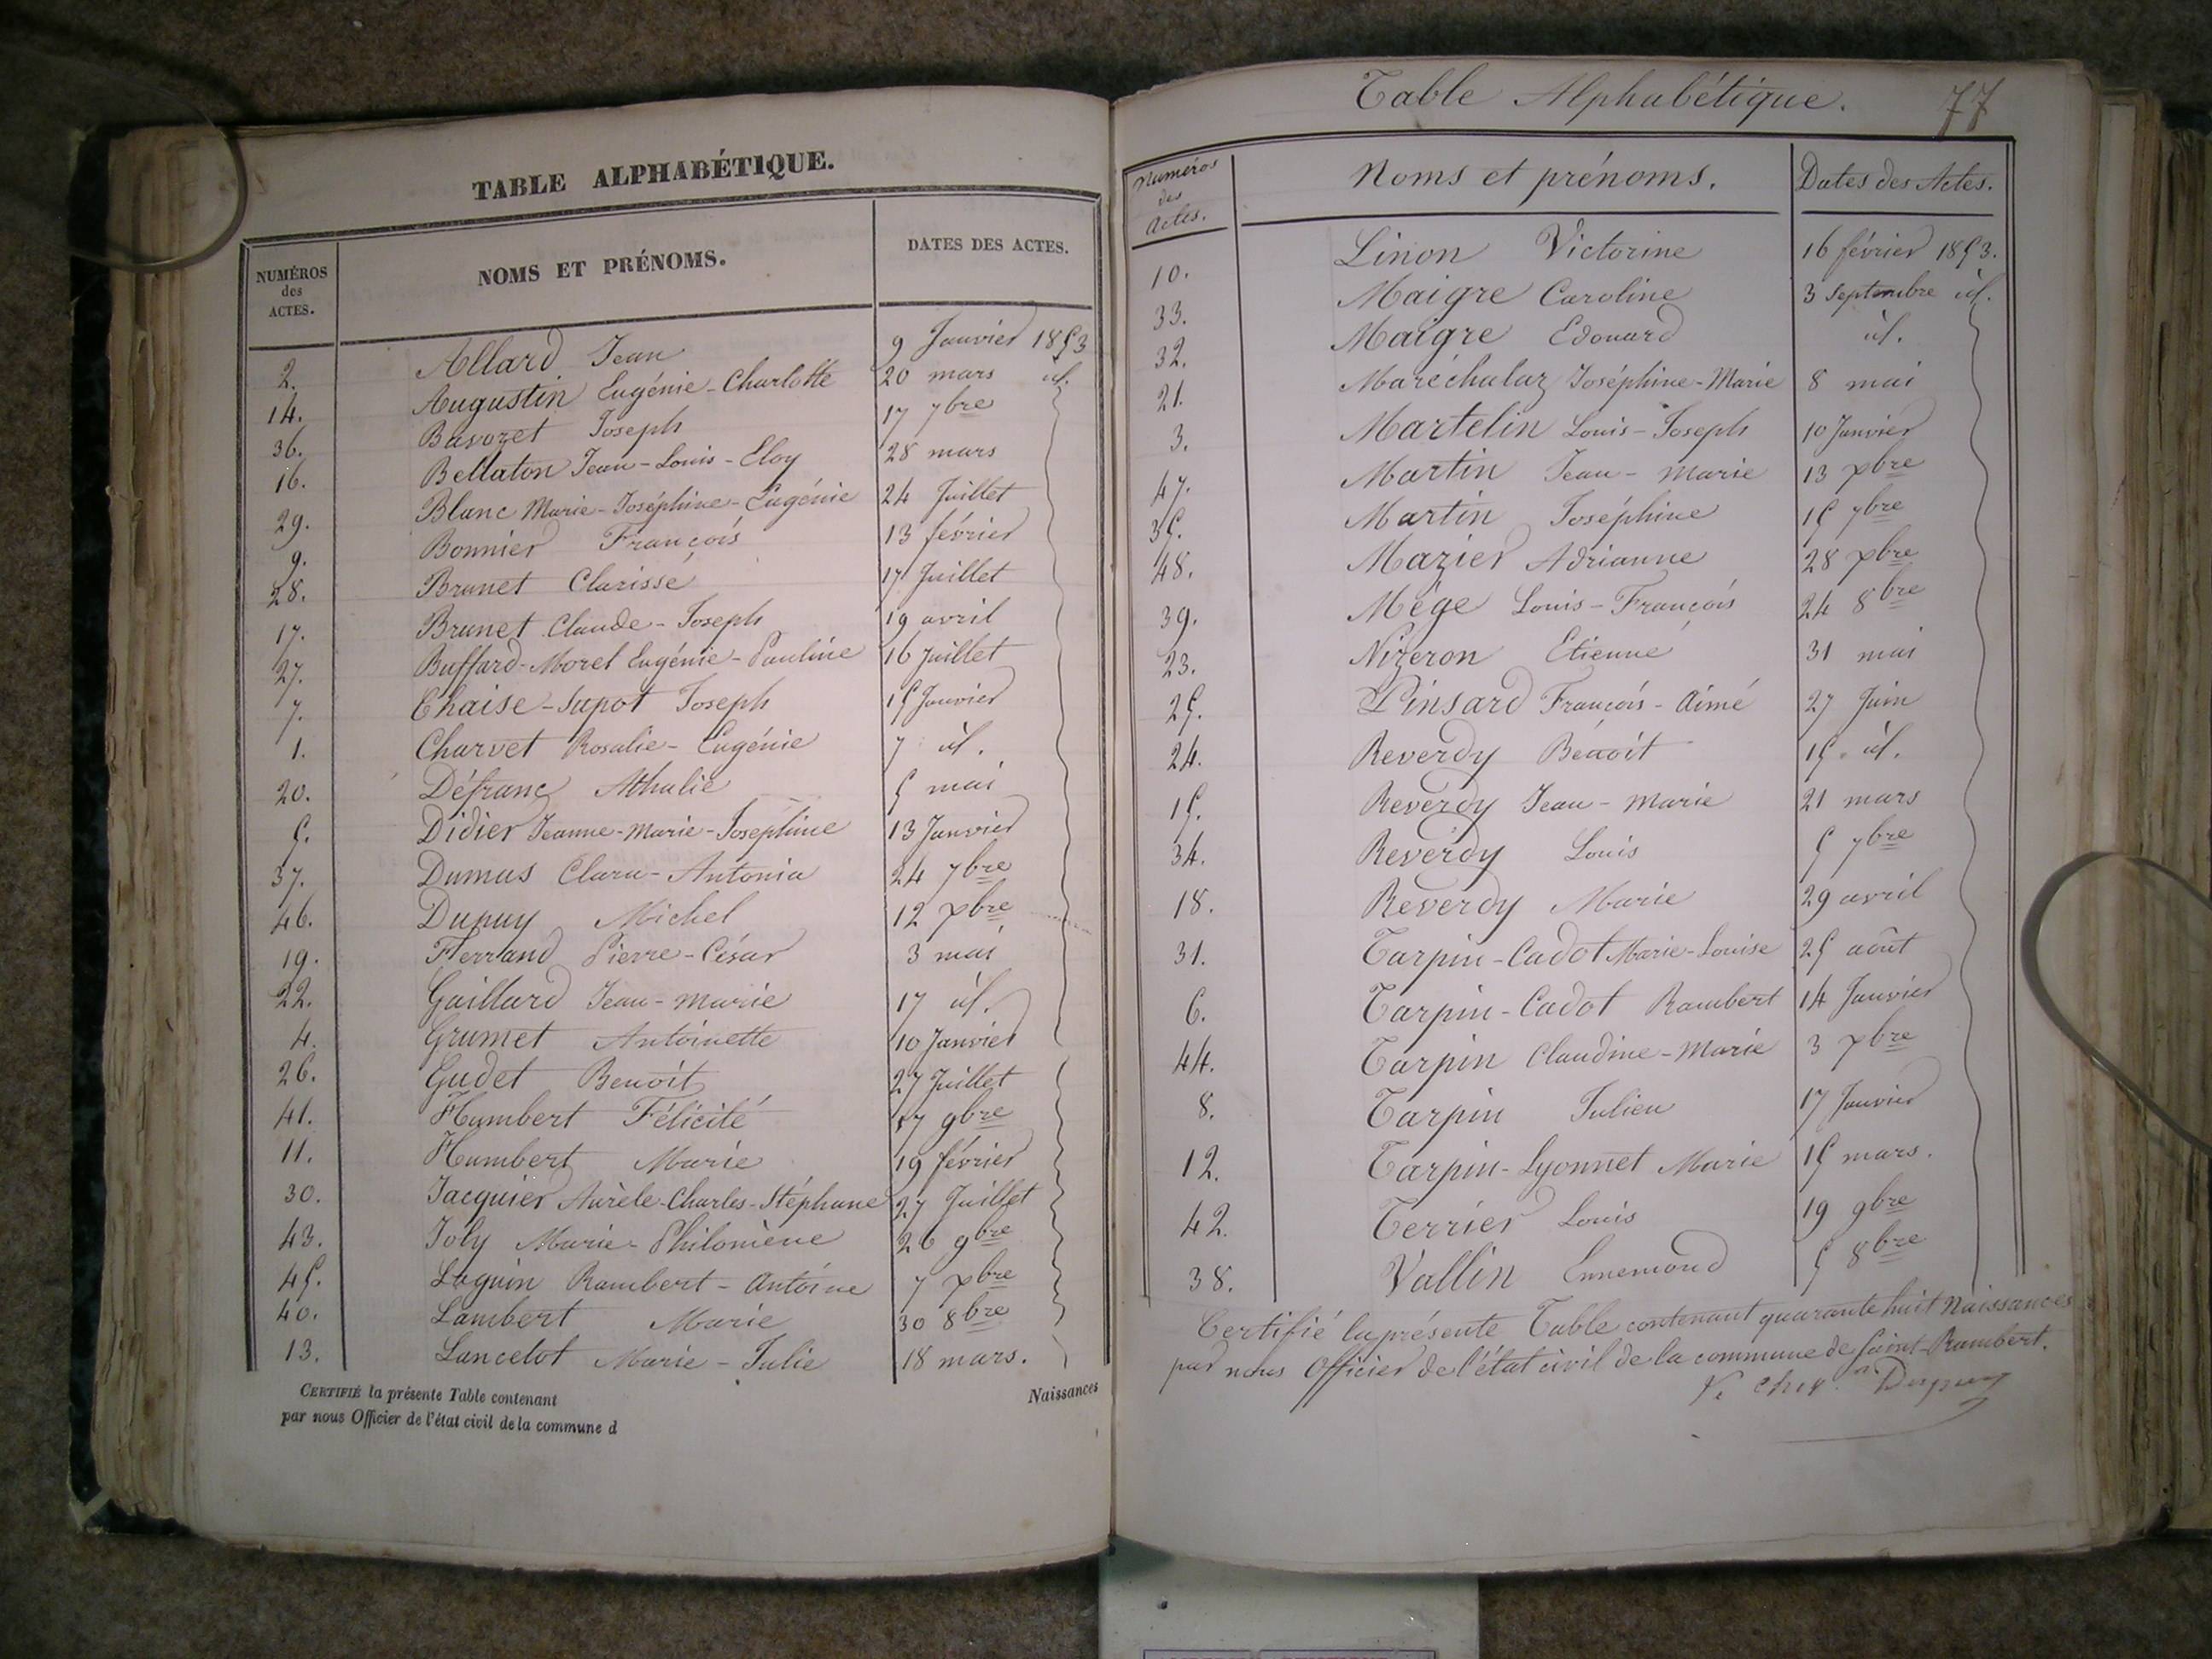 TABLE ALPHABÉTIQUE.
NUMÉROS des ACTES. NOMS ET PRÉNOMS. DATES DES ACTES.
2. Allard Jean 9 Janvier 1853
14. Augustin Eugénie-Charlotte 20 mars id.
36. Bavozet Joseph 17 7bre
16. Bellaton Jean-Louis-Eloy 28 mars
29. Blanc Marie-Joséphine-Eugénie 24 Juillet
9. Bonnier François 13 février
28. Brunet Clarisse 17 Juillet
17. Brunet Claude-Joseph 19 avril
27. Buffard-Morel Eugénie-Pauline 16 Juillet
7. Chaise-Supot Joseph 15 Janvier
1. Charvet Rosalie-Eugénie 7 id.
20. Défranc Athalie 5 mai
5. Didier Jeanne-Marie-Joséphine 13 Janvier
37. Dumas Clara-Antonia 24 7bre
46. Dupuy Michel 12 xbre
19. Ferrand Pierre-César 3 mai
22. Gaillard Jean-Marie 17 id.
4. Grumet Antoinette 10 Janvier
26. Gudet Benoit 27 Juillet
41. Humbert Félicité 17 9bre
11. Humbert Marie 19 février
30. Jacquier Aurèle-Charles-Stéphane 27 Juillet
43. Joly Marie-Philomène 26 9bre
45. Laguin Rambert-Antoine 7 xbre
40. Lambert Marie 30 8bre
13. Lancelot Marie-Julie 18 mars.
CERTIFIÉ la présente Table contenant Naissances
par nous Officier de l'état civil de la commune d
Table Alphabétique. 77
Numéros des Actes. Noms et prénoms. Dates des Actes.
10. Linon Victorine 16 février 1853.
33. Maigre Caroline 3 Septembre id.
32. Maigre Edouard id.
21. Maréchalaz Joséphine-Marie 8 mai
3. Martelin Louis-Joseph 10 Janvier
47. Martin Jean-Marie 13 xbre
35. Martin Joséphine 15 7bre
48. Mazier Adrianne 28 xbre
39. Mège Louis-François 24 8bre
23. Nizeron Etienne 31 mai
25. Pinsard François-Aimé 27 Juin
24. Reverdy Benoit 15 id.
15. Reverdy Jean-Marie 21 mars
34. Reverdy Louis 5 7bre
18. Reverdy Marie 29 avril
31. Tarpin-Cadot Marie-Louise 25 août
6. Tarpin-Cadot Rambert 14 Janvier
44. Tarpin Claudine-Marie 3 xbre
8. Tarpin Julien 17 Janvier
12. Tarpin-Lyonnet Marie 15 mars.
42. Terrier Louis 19 9bre
38. Vallin Ennemond 5 8bre
Certifié la présente Table contenant quarante huit Naissances
par nous Officier de l'état civil de la commune de Saint-Rambert.
Dupuy